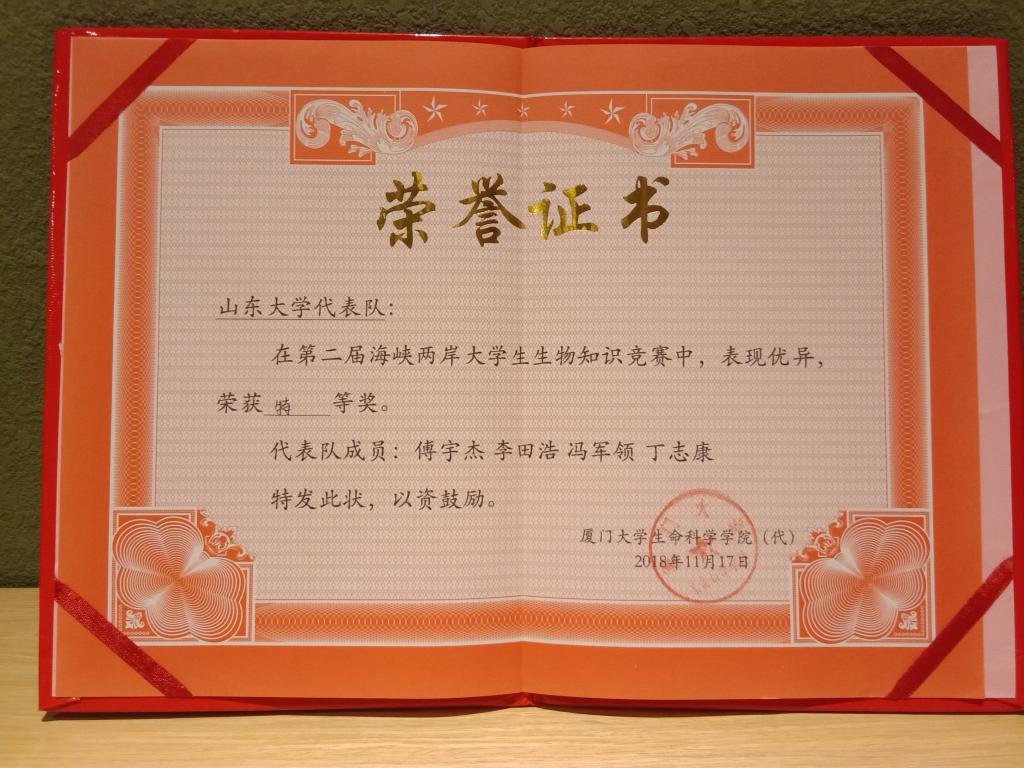 荣誉证书
山东大学代表队：
在第二届海峡两岸大学生生物知识竞赛中，表现优异，
荣获 特 等奖。
代表队成员：傅宇杰 李田浩 冯军领 丁志康
特发此状，以资鼓励。
厦门大学生命科学学院（代）
2018年11月17日